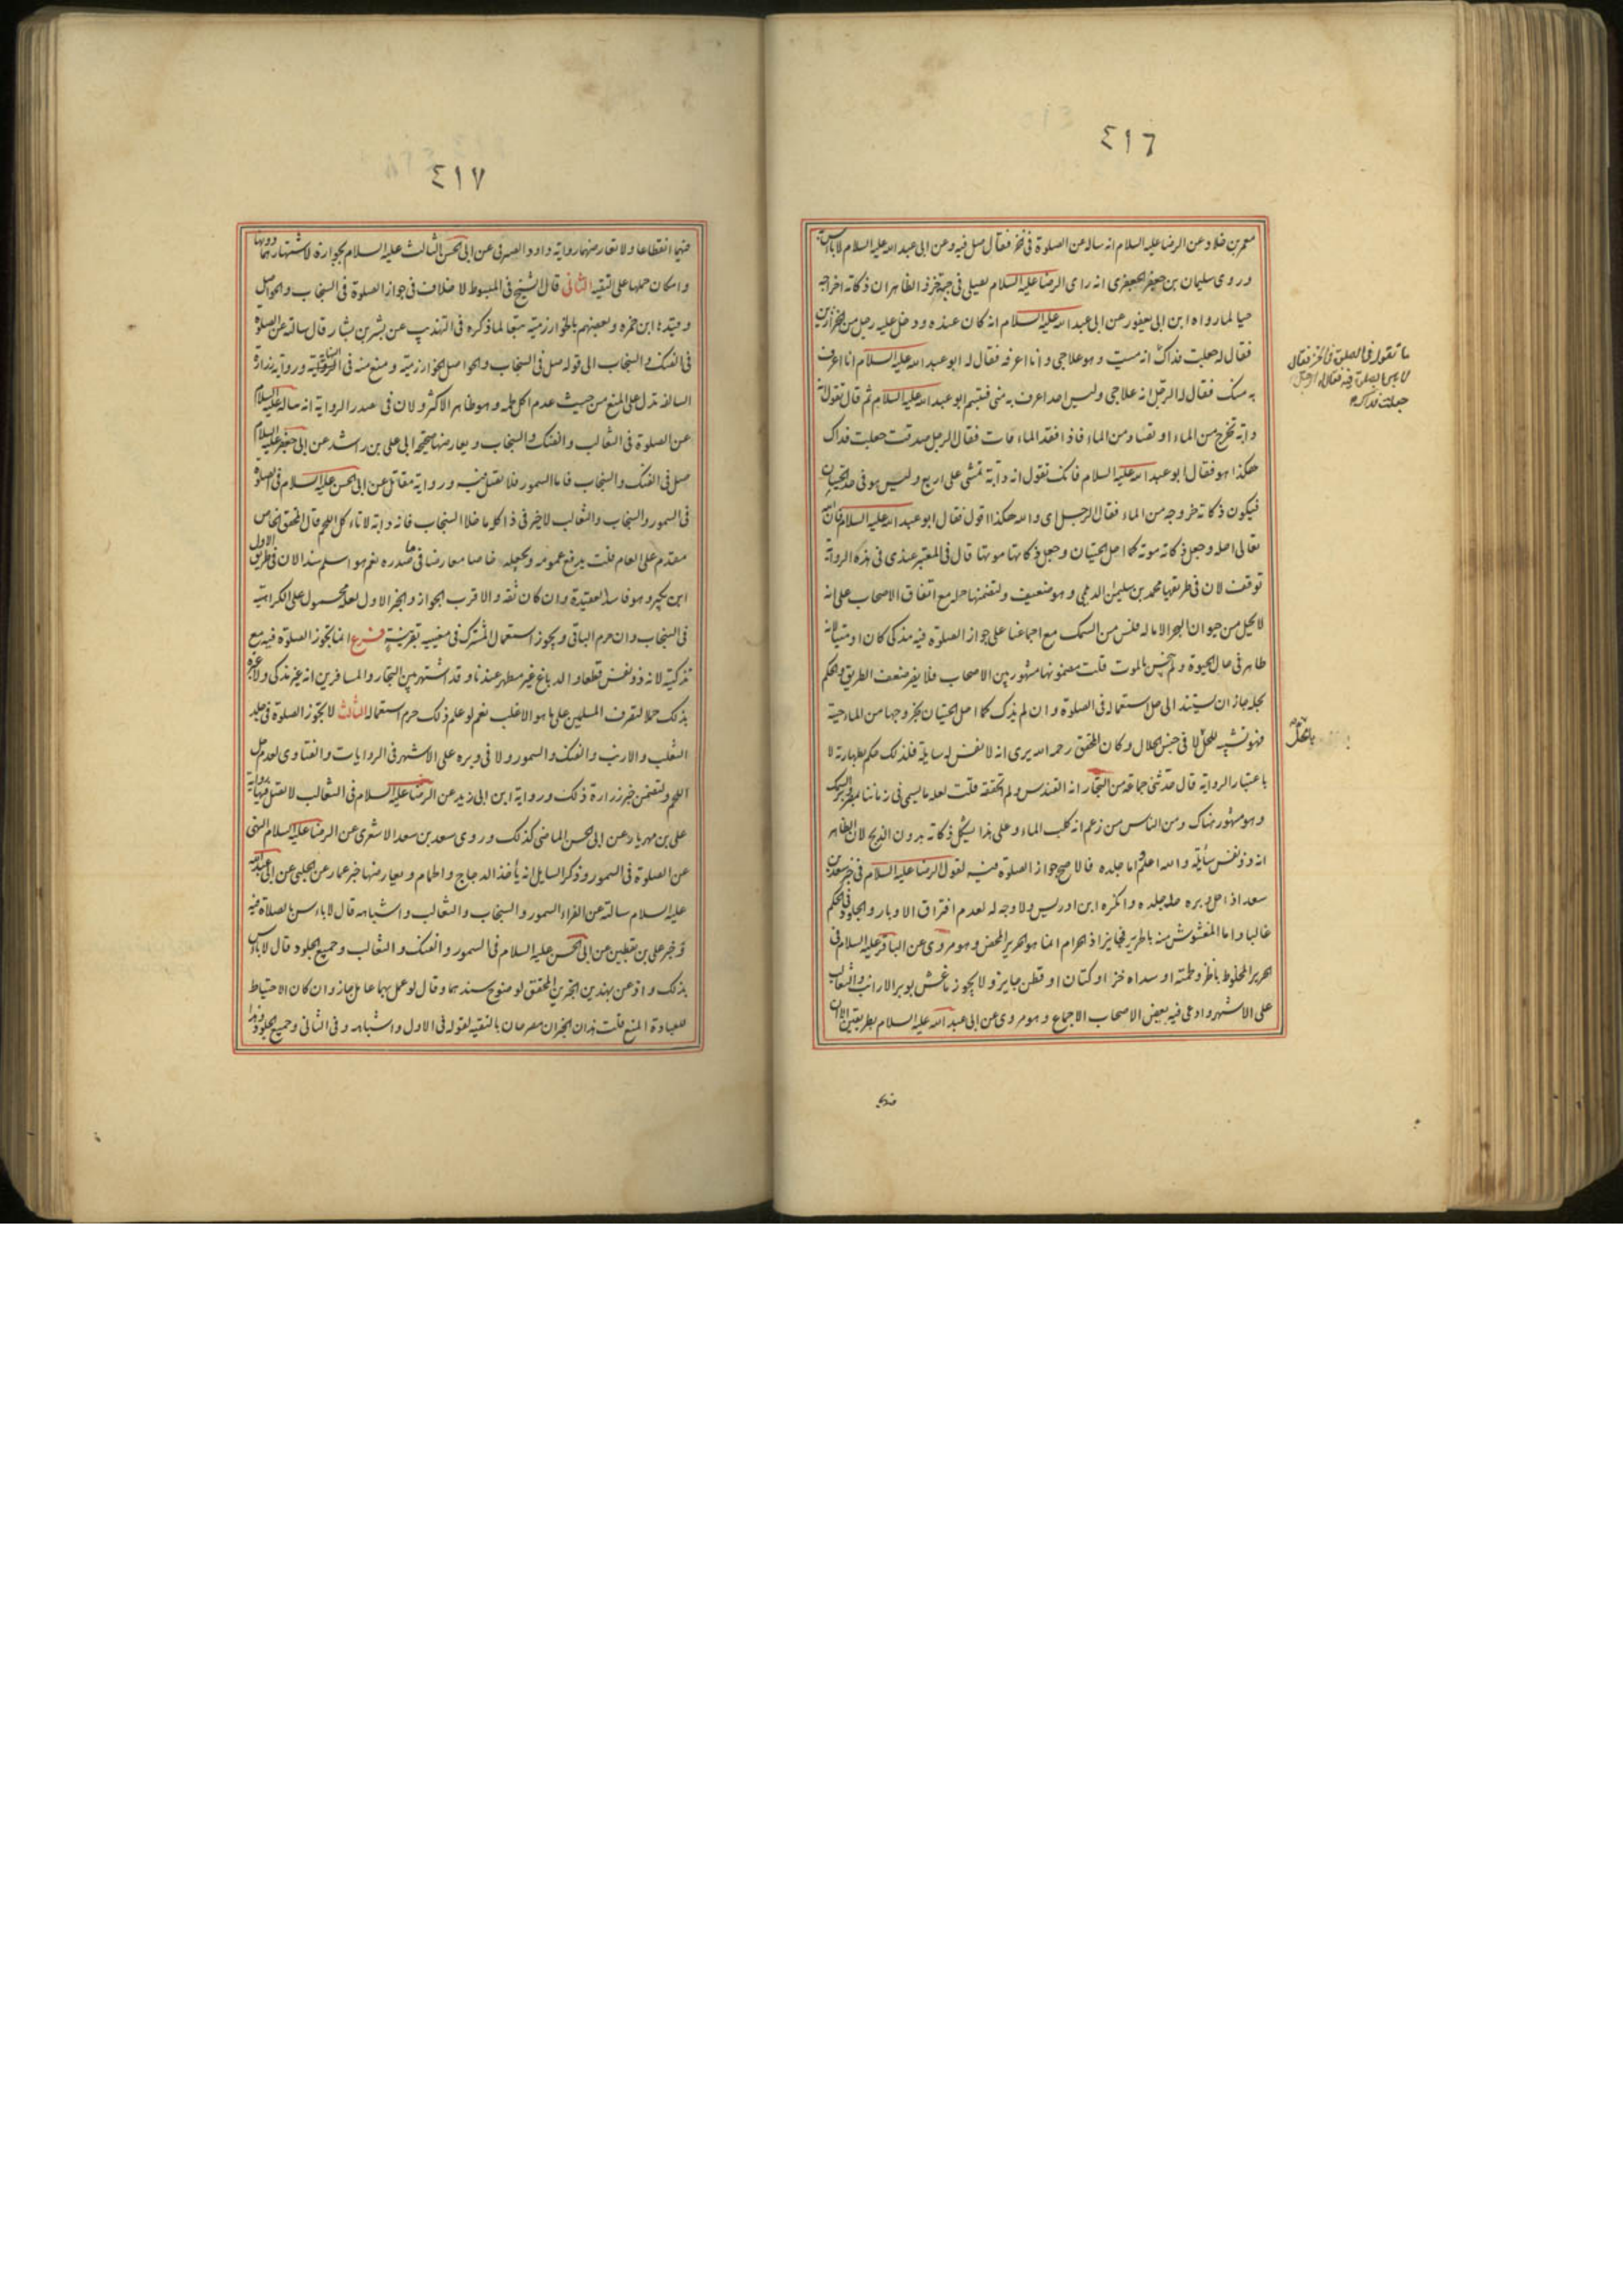 ٤١٦
معمر بن خلاد عن الرضا عليه السلام انه ساله عن الصلوة في الخز فقال صل فيه وعن ابي عبد الله عليه السلام لا باس به
وروى سليمان بن جعفر الجعفري انه راى الرضا عليه السلام يصلي في جبة خز والظاهر ان ذكاته اخراجه
حيا لما رواه ابن ابي يعفور عن ابي عبد الله عليه السلام انه كان عنده ودخل عليه رجل من الخزازين
فقال له جعلت فداك انه ميت وهو علاجي وانا اعرفه فقال له ابو عبد الله عليه السلام انا اعرف
به منك فقال له الرجل انه علاجي وليس احد اعرف به مني فتبسم ابو عبد الله عليه السلام ثم قال تقول انه
دابة تخرج من الماء او تصاد من الماء فاذا فقد الماء مات فقال الرجل صدقت جعلت فداك
هكذا هو فقال ابو عبد الله عليه السلام فانك تقول انه دابة تمشي على اربع وليس هو في حد الحيتان
فيكون ذكاته خروجه من الماء فقال الرجل اى والله هكذا اقول فقال ابو عبد الله عليه السلام فان الله
تعالى احله وجعل ذكاته موته كما احل الحيتان وجعل ذكاتها موتها قال في المعتبر عندي في هذه الرواية
توقف لان في طريقها محمد بن سليمن الديلمي وهو ضعيف ولتضمنها حله مع اتفاق الاصحاب على انه
لا يحل من حيوان البحر الا ما له فلس من السمك مع اجماعنا على جواز الصلوة فيه مذكى كان او ميتا لانه
طاهر في حال الحيوة ولم ينجس بالموت قلت مضمونها مشهور بين الاصحاب فلا يضر ضعف الطريق والحكم
بحله جاز ان يستند الى حل استعماله في الصلوة وان لم يذك كما احل الحيتان بخروجها من الماء حية
فهو تشبيه للحل لا في جنس الحلال وكان المحقق رحمه الله يرى انه لا نفس له سايلة فلذلك حكم بطهارته لا
باعتبار الرواية قال حدثني جماعة من التجار انه القندس ولم اتحققه قلت لعله ما يسمى في زماننا بمصر وبر السمك
وهو مشهور هناك ومن الناس من زعم انه كلب الماء وعلى هذا يشكل ذكاته بدون الذبح لان الظاهر
انه ذو نفس سايلة والله اعلم واما جلده فالاصح جواز الصلوة فيه لقول الرضا عليه السلام في خبر سعد بن
سعد اذا حل وبره حل جلده وانكره ابن ادريس ولا وجه له لعدم افتراق الاوبار والجلود في الحكم
غالبا واما المغشوش منه بالحرير فجايز اذ الحرام انما هو الحرير المحض وهو مروى عن الباقر عليه السلام في
الحرير المخلوط بالخز ولحمته او سداه خز او كتان او قطن جايز ولا يجوز ما غش بوبر الارانب والثعالب
على الاشهر وادعى فيه بعض الاصحاب الاجماع وهو مروى عن ابي عبد الله عليه السلام بطريقين الا ان
ما تقول في الصلوة في الخز فقال
لا باس بالصلوة فيه فقال له الرجل
جعلت فداك
بالحل
فيهما
٤١٧
فيهما انقطاعا ولا تعارضهما رواية داود الصرمي عن ابي الحسن الثالث عليه السلام بجوازه لاشتهارهما دونها
وامكان حملها على التقية الثاني قال الشيخ في المبسوط لا خلاف في جواز الصلوة في السنجاب والحواصل
وقيدها ابن حمزه وبعضهم بالخوارزمية تبعا لما ذكره في التهذيب عن بشر بن بشار قال سالته عن الصلوة
في الفنك والسنجاب الى قوله صل في السنجاب والحواصل الخوارزمية ومنع منه في النهاية ورواية زرارة
السالفة تدل على المنع من حيث عدم اكل لحمه وهو ظاهر الاكثر ولان في صدر الرواية انه ساله عليه السلام
عن الصلوة في الثعالب والفنك والسنجاب ويعارضها صحيحة ابي علي بن راشد عن ابي جعفر عليه السلام
صل في الفنك والسنجاب فاما السمور فلا تصل فيه ورواية مقاتل عن ابي الحسن عليه السلام في الصلوة
في السمور والسنجاب والثعالب لا خير في ذا كله ما خلا السنجاب فانه دابة لا تاكل اللحم قال المحقق الخاص
مقدم على العام قلت يرفع عمومه ويجعله خاصا معارضا في صدره نعم هو اسلم سندا لان في طريق الاول
ابن بكير وهو فاسد العقيدة وان كان ثقة والاقرب الجواز والخبر الاول لعله محمول على الكراهية
في السنجاب وان حرم الباقي ويجوز استعمال المشترك في معنييه بقرينة فرع انما يجوز الصلوة فيه مع
تذكيته لانه ذو نفس قطعا والدباغ غير مطهر عندنا وقد اشتهر بين التجار والمسافرين انه غير مذكى ولا عبرة
بذلك حملا لتصرف المسلمين على ما هو الاغلب نعم لو علم ذلك حرم استعماله الثالث لا يجوز الصلوة في جلد
الثعلب والارنب والفنك والسمور ولا في وبره على الاشهر في الروايات والفتاوى لعدم حل
اللحم ولتضمن خبر زرارة ذلك ورواية ابن ابي زيد عن الرضا عليه السلام في الثعالب لا تصل فيها ورواية
علي بن مهزيار عن ابي الحسن الماضي كذلك وروى سعد بن سعد الاشعري عن الرضا عليه السلام النهي
عن الصلوة في السمور وذكر السايل انه يأخذ الدجاج والحمام ويعارضها خبر عمار عن الحلبي عن ابي عبد الله
عليه السلام سالته عن الفراء السمور والسنجاب والثعالب واشباهه قال لا باس بالصلاة فيه
وخبر علي بن يقطين عن ابي الحسن عليه السلام في السمور والفنك والثعالب وجميع الجلود قال لا باس
بذلك واذعن بهذين الخبرين المحقق لوضوح سندهما وقال لو عمل بهما عامل جاز وان كان الاحتياط
للعبادة المنع قلت هذان الخبران مصرحان بالتقية لقوله في الاول واشباهه وفي الثاني وجميع الجلود وهذا